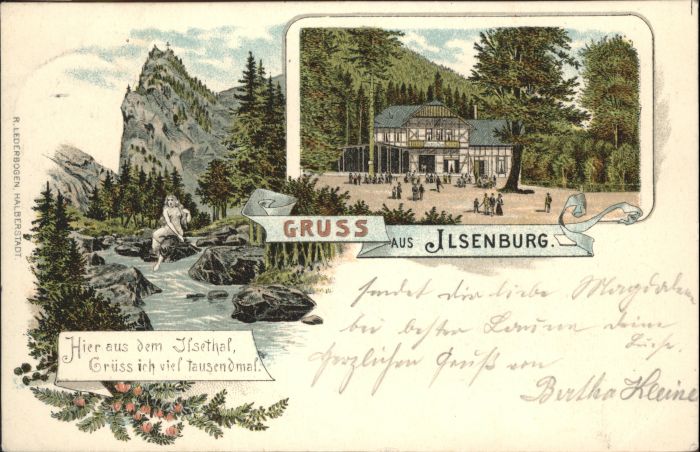 R. LEDERBOGEN, HALBERSTADT.
GRUSS AUS ILSENBURG.
Hier aus dem Ilsethal,
Grüss ich viel tausendmal.
sendet dir liebe Magdalene
bei bester Laune deine
Herzlichen Gruß von
Bertha Kleine